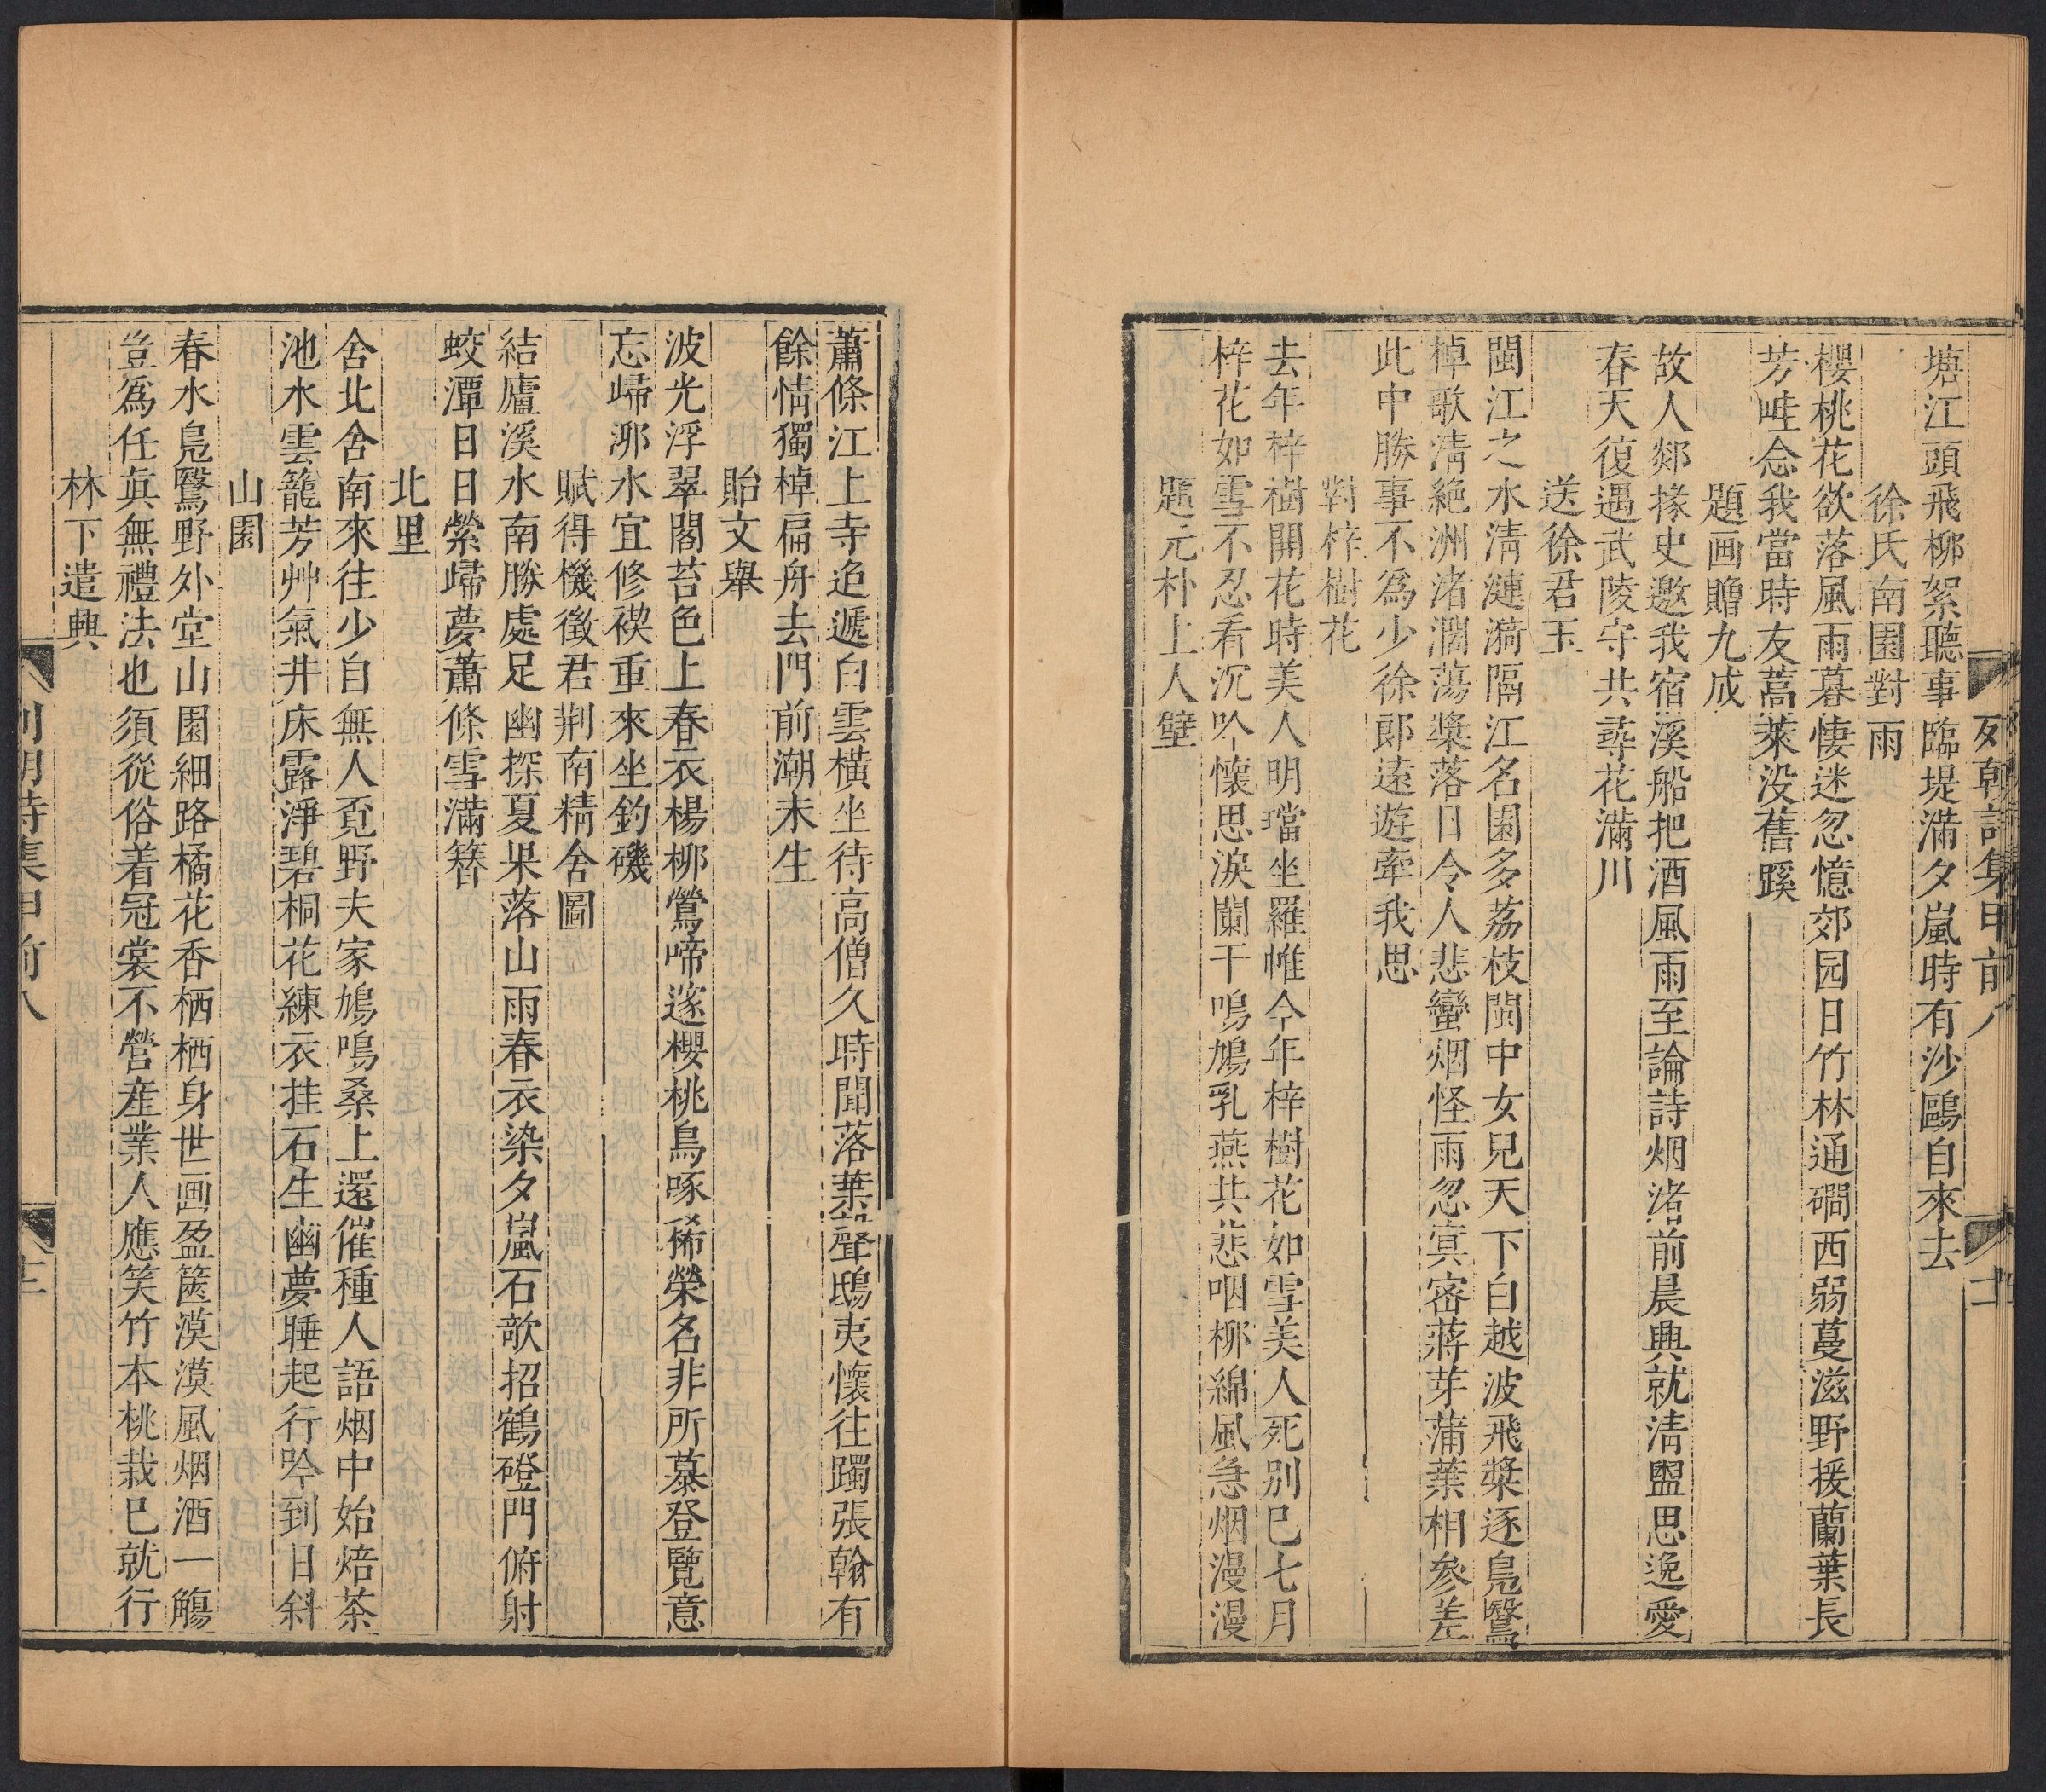 列朝詩集甲前八
十二
塘江頭飛柳絮聽事臨堤滿夕嵐時有沙鷗自來去
徐氏南園對雨
櫻桃花欲落風雨暮悽迷忽憶郊园日竹林通磵西弱蔓滋野援蘭葉長
芳畦念我當時友蒿萊没舊蹊
題画贈九成
故人郯掾史邀我宿溪船把酒風雨至論詩烟渚前晨興就清盥思逸愛
春天復遇武陵守共尋花滿川
送徐君玉
閩江之水清漣漪隔江名園多荔枝閩中女兒天下白越波飛槳逐鳧鷖
棹歌清絶洲渚濶蕩槳落日令人悲蠻烟怪雨忽冥密蔣芽蒲葉相參差
此中勝事不爲少徐郎遠遊牽我思
對梓樹花
去年梓樹開花時美人明璫坐羅帷今年梓樹花如雪美人死别已七月
梓花如雪不忍看沉吟懷思淚闌干鳴鳩乳燕共悲咽柳綿風急烟漫漫
題元朴上人壁
蕭條江上寺迢遞白雲橫坐待高僧久時聞落葉聲鴟夷懷往躅張翰有
餘情獨棹扁舟去門前潮未生
貽文舉
波光浮翠閣苔色上春衣楊柳鶯啼遂櫻桃鳥啄稀榮名非所慕登覽意
忘歸浉水宜修禊重來坐釣磯
賦得機徵君荆南精舍圖
結廬溪水南勝處足幽探夏果落山雨春衣染夕嵐石欹招鶴磴門俯射
蛟潭日日縈歸夢蕭條雪滿簪
北里
舍北舍南來往少自無人覓野夫家鳩鳴桑上還催種人語烟中始焙茶
池水雲籠芳艸氣井床露淨碧桐花練衣挂石生幽夢睡起行吟到日斜
山園
春水鳧鷖野外堂山園細路橘花香栖栖身世画盈篋漠漠風烟酒一觴
豈爲任眞無禮法也須從俗着冠裳不營産業人應笑竹本桃栽已就行
林下遣興
列朝詩集甲前八
十三